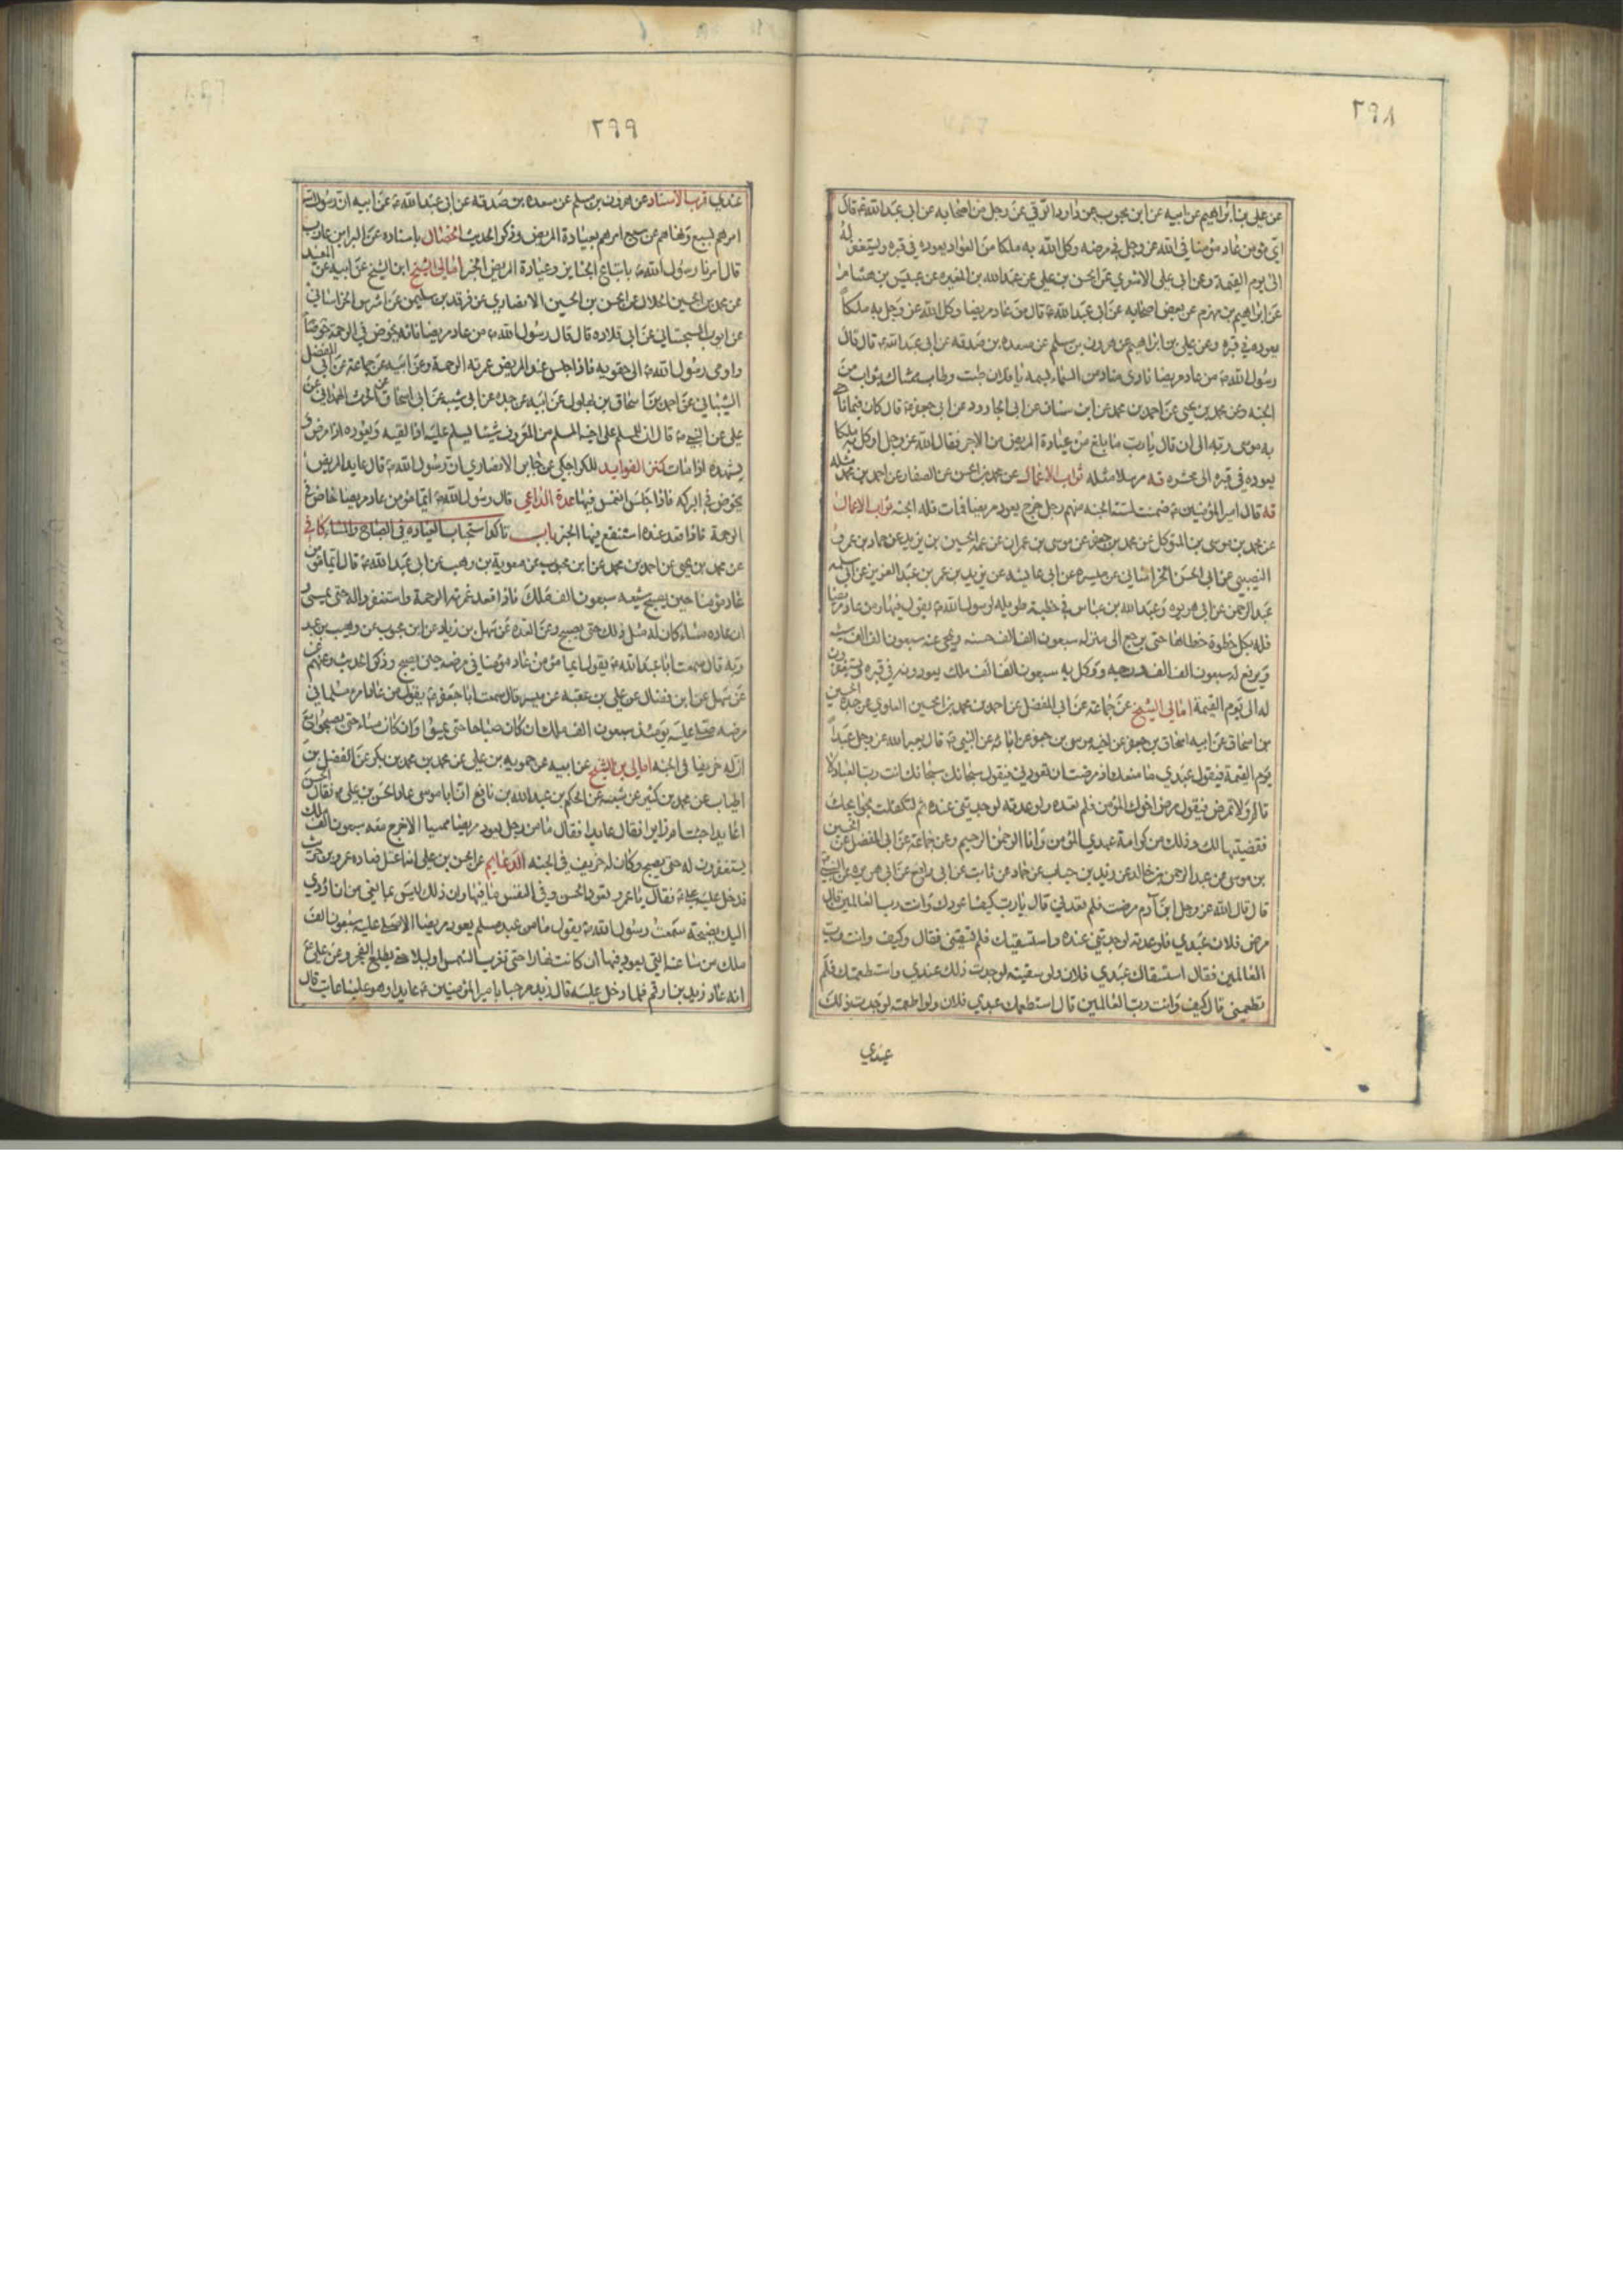 ٢٩٨
عن علي بن ابراهيم عن ابيه عن ابن محبوب عن داود الرقي عن رجل من اصحابه عن ابي عبد الله ع قال
اي مؤمن عاد مؤمنا في الله عز وجل في مرضه وكل الله به ملكا من العواد يعوده في قبره ويستغفر له
الى يوم القيمة وعن ابي علي الاشعري عن الحسن بن علي عن عبد الله بن المغيره عن عبيس بن هشام
عن ابراهيم بن مهزم عن بعض اصحابه عن ابي عبد الله ع قال من عاد مريضا وكل الله عز وجل به ملكاً
يعوده في قبره وعن علي بن ابراهيم عن هرون بن مسلم عن مسعدة بن صدقه عن ابي عبد الله ع قال قال
رسول الله ص من عاد مريضا نادى مناد من السماء باسمه يا فلان طبت وطاب ممشاك بثواب من
الجنه وعن محمد بن يحيى عن احمد بن محمد عن ابن سنان عن ابي الجارود عن ابي جعفر ع قال كان فيما ناجى
به موسى ربه الى ان قال يا رب ما بلغ من عيادة المريض من الاجر فقال الله عز وجل اوكل به ملكا
يعوده في قبره الى محشره فه مرسلا مثله ثواب الاعمال عن محمد بن الحسن عن الصفار عن احمد بن محمد مثله
فه قال امير المؤمنين ع ضمنت لستة الجنه منهم رجل خرج يعود مريضا فمات فله الجنه ثواب الاعمال
عن محمد بن موسى بن المتوكل عن محمد بن جعفر عن موسى بن عمران عن عمه الحسين بن يزيد عن حماد بن عمرو
النصيبي عن ابي الحسن الخراساني عن ميسره عن ابي عايشه عن يزيد بن عمر بن عبد العزيز عن ابي سلمه
عبد الرحمن عن ابي هريره وعبد الله بن عباس في خطبة طويله لرسول الله ص يقول فيها ومن عاد مريضا
فله بكل خطوة خطاها حتى يرجع الى منزله سبعون الف الف حسنه ومحي عنه سبعون الف الف سيئه
ويرفع له سبعون الف الف درجه ووكل به سبعون الف الف ملك يعودونه في قبره ويستغفرون
له الى يوم القيمة امالي الشيخ عن جماعة عن ابي المفضل عن احمد بن محمد بن الحسين العلوي عن جده الحسين
بن اسحاق عن ابيه اسحاق بن جعفر عن اخيه موسى بن جعفر عن ابائه عن النبي ص قال يعير الله عز وجل عبداً
يوم القيمة فيقول عبدي ما منعك اذ مرضت ان تعودني فيقول سبحانك سبحانك انت رب العباد لا
تالم ولا تمرض فيقول مرض اخوك المؤمن فلم تعده ولو عدته لوجدتني عنده ثم لتكفلت بحوائجك
فقضيتها لك وذلك من كرامة عبدي المؤمن وانا الرحمن الرحيم وعن جماعة عن ابي المفضل عن الحسين
بن موسى عن عبد الرحمن بن خالد عن زيد بن حباب عن حماد عن ثابت عن ابي رافع عن ابي هريره عن النبي ص
قال قال الله عز وجل ابن آدم مرضت فلم تعدني قال يا رب كيف اعودك وانت رب العالمين قال
مرض فلان عبدي فلو عدته لوجدتني عنده واستسقيتك فلم تسقني فقال وكيف وانت رب
العالمين فقال استسقاك عبدي فلان ولو سقيته لوجدت ذلك عندي واستطعمتك فلم
تطعمني قال كيف وانت رب العالمين قال استطعمك عبدي فلان ولو اطعمته لوجدت ذلك
عندي
٢٩٩
عندي قرب الاسناد عن هرون بن مسلم عن مسعده بن صدقه عن ابي عبد الله ع عن ابيه ان رسول الله
امرهم بسبع ونهاهم عن سبع امرهم بعيادة المريض وذكر الحديث الخصال باسناده عن البرا بن عازب
قال امرنا رسول الله ص باتباع الجنايز وعيادة المريض الخبر امالي الشيخ ابن الشيخ عن ابيه عن المفيد
عن محمد بن الحسين الحلال عن الحسن بن الحسين الانصاري عن فرقد بن سليمن عن اشرس الخراساني
عن ايوب السجستاني عن ابي قلابه قال قال رسول الله ص من عاد مريضا فانه يخوض في الرحمة
واومى رسول الله ص الى حقويه فاذا جلس عند المريض غمرته الرحمة وعن ابيه عن جماعة عن ابي المفضل
الشيباني عن احمد بن اسحاق بن بهلول عن ابيه عن جده عن ابي شيبه عن ابي اسحاق عن الحرث الهمداني عن
علي عن النبي ص قال ان للمسلم على اخيه المسلم من المعروف ستا يسلم عليه اذا لقيه ويعوده اذا مرض و
يشهده اذا مات كنز الفوايد للكراجكي عن جابر الانصاري ان رسول الله ص قال عايد المريض
يخوض في البركه فاذا جلس انغمس فيها عدة الداعي قال رسول الله ص ايما مؤمن عاد مريضا خاض في
الرحمة فاذا قعد عنده استنقع فيها الخبر باب تاكد استحباب العياده في الصباح والمساء كا في
عن محمد بن يحيى عن احمد بن محمد عن ابن محبوب عن معوية بن وهب عن ابي عبد الله ع قال ايما مؤمن
عاد مؤمنا حين يصبح شيعه سبعون الف ملك فاذا قعد غمرته الرحمة واستغفروا له حتى يمسى و
ان عاده مساء كان له مثل ذلك حتى يصبح وعن العده عن سهل بن زياد عن ابن محبوب عن وهب بن عبد
ربه قال سمعت ابا عبد الله ع يقول ايما مؤمن عاد مؤمنا في مرضه حين يصبح وذكر الحديث وعنهم
عن سهل عن ابن فضال عن علي بن عقبه عن ميسر قال سمعت ابا جعفر ع يقول من عاد امرء مسلما في
مرضه صلى عليه يومئذ سبعون الف ملك ان كان صباحا حتى يمسوا وان كان مساء حتى يصبحوا مع
ان له خريفا في الجنه امالي بن الشيخ عن ابيه عن حمويه بن علي عن محمد بن محمد بن بكر عن الفضل بن
الحباب عن محمد بن كثير عن شعبه عن الحكم بن عبد الله بن نافع ان ابا موسى عاد الحسن بن علي ع فقال الحسن
اعايدا جئت ام زايرا فقال عايدا فقال ما من رجل يعود مريضا ممسيا الا خرج معه سبعون الف ملك
يستغفرون له حتى يصبح وكان له خريف في الجنه الدعايم عن الحسن بن علي انه اعتل فعاده عمرو بن حريث
فدخل عليه علي ع فقال يا عمرو تعود الحسن وفي النفس ما فيها وان ذلك ليس بمانعي من ان اؤدي
اليك نصيحة سمعت رسول الله ص يقول ما من عبد مسلم يعود مريضا الا صلى عليه سبعون الف
ملك من ساعته التي يعود فيها ان كانت نهارا حتى تغرب الشمس او ليلا حتى يطلع الفجر وعن علي ع
انه عاد زيد بن ارقم فلما دخل عليه قال زيد مرحبا بامير المؤمنين ع عايدا وهو علينا عاتب قال